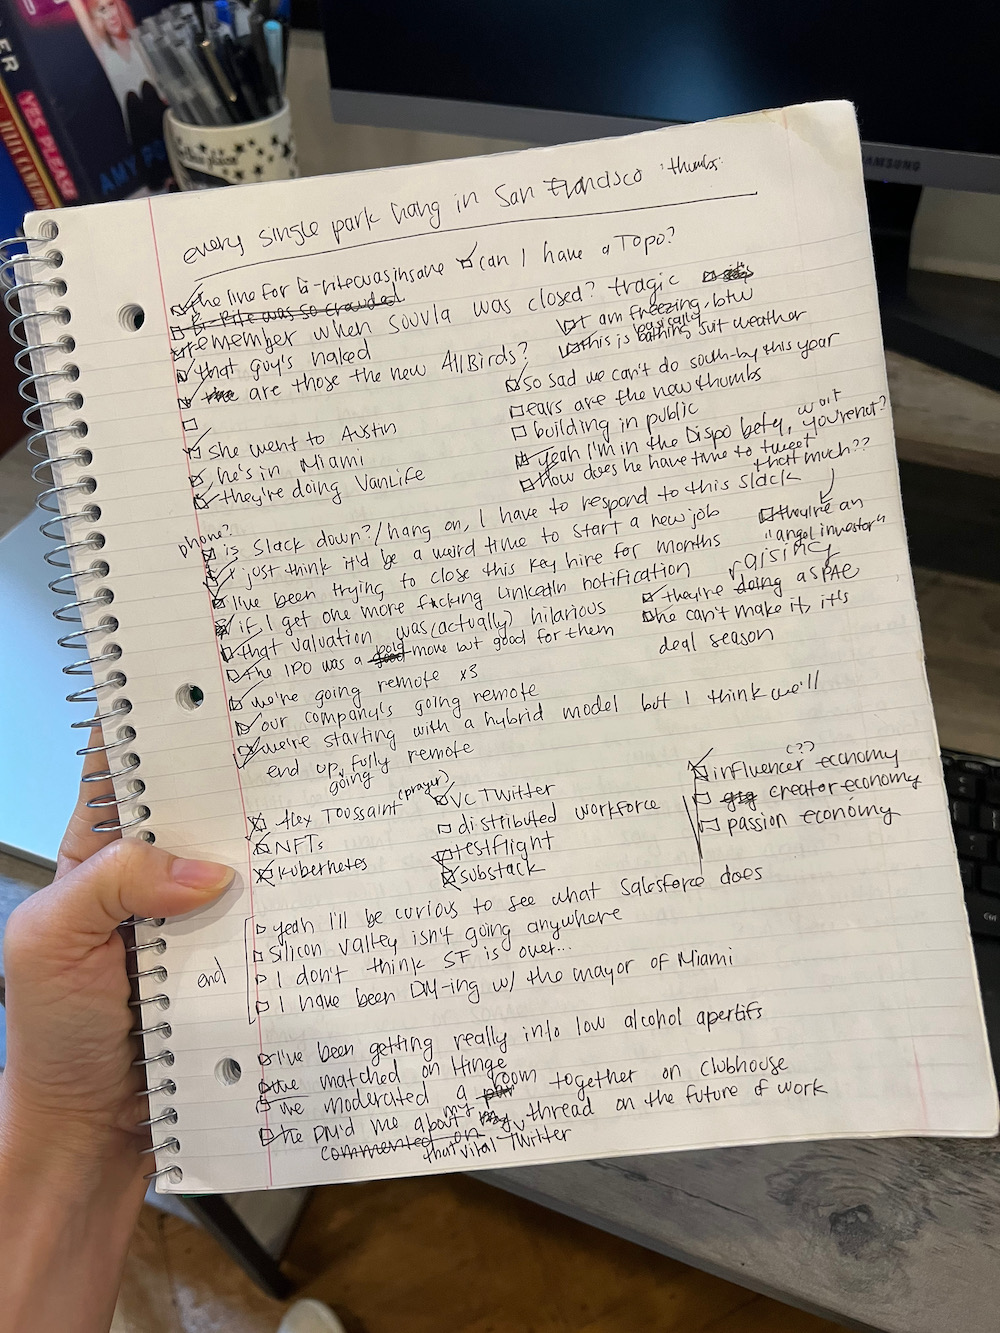 YES PLEASE
AMY PO
SAMSUNG
every single park hang in San Francisco :thumbs:
the line for bi-rite was insane
can I have a Topo?
Bi-Rite was so crowded
remember when Souvla was closed? tragic
that guy's naked
I am freezing, btw
are those the new AllBirds?
this is basically bathing suit weather
so sad we can't do south-by this year
ears are the new thumbs
building in public
she went to Austin
yeah I'm in the Dispo beta, wait you're not?
he's in Miami
How does he have time to tweet that much??
they're doing VanLife
phone?
is Slack down?/hang on, I have to respond to this slack
they're an "angel investor"
I just think it'd be a weird time to start a new job
I've been trying to close this key hire for months
if I get one more f*cking LinkedIn notification
they're doing raising a SPAC
that valuation was (actually) hilarious
he can't make it, it's
deal season
the IPO was a good bold move but good for them
we're going remote x3
our company's going remote
we're starting with a hybrid model but I think we'll
end up going fully remote
Alex Toussaint (prayer)
VC Twitter
influencer economy (??)
NFTs
distributed workforce
creator economy
Kubernetes
testflight
passion economy
substack
end
yeah I'll be curious to see what Salesforce does
Silicon Valley isn't going anywhere
I don't think SF is over...
I have been DM-ing w/ the mayor of Miami
I've been getting really into low alcohol apertifs
we matched on Hinge
we moderated a room together on clubhouse
he DM'd me about my thread on the future of work
commented on that vital Twitter